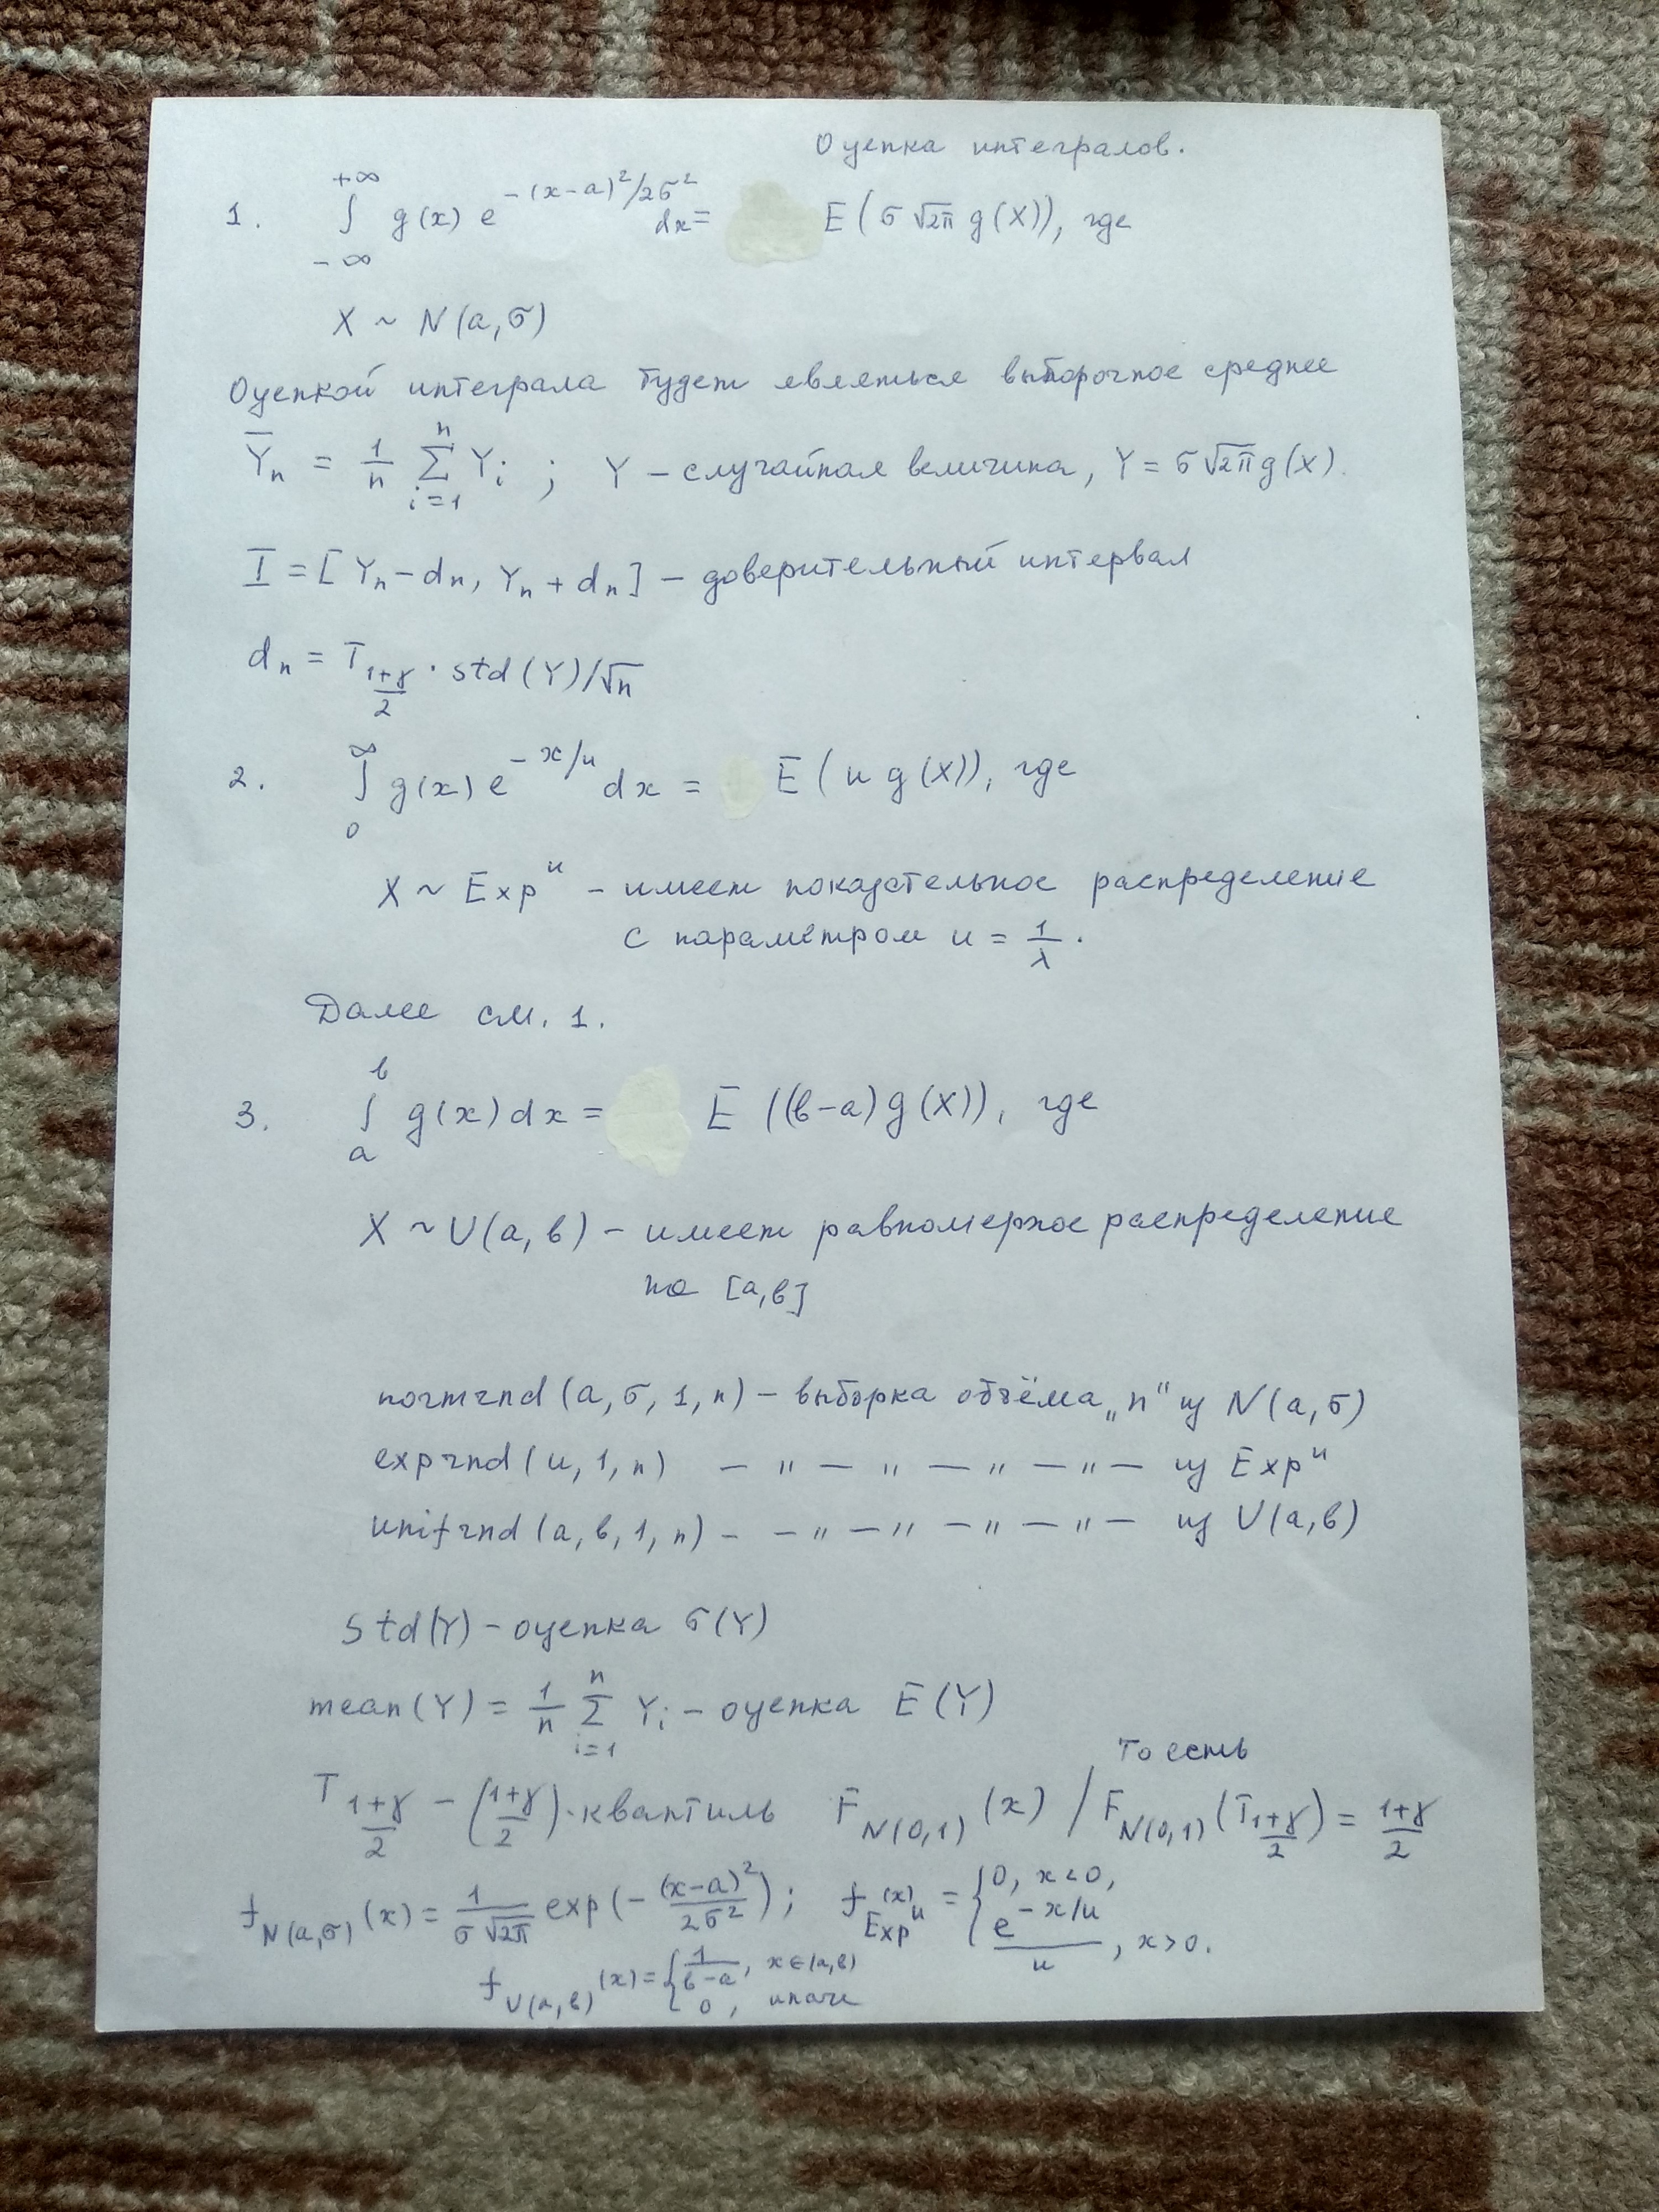 Оценка интегралов.
1. ∫_{-∞}^{+∞} g(x) e^{-(x-a)²/2σ²} dx = E(σ√2π g(X)), где
X ~ N(a,σ)
Оценкой интеграла будет являться выборочное среднее
Y̅ₙ = 1/n ∑_{i=1}^{n} Yᵢ ; Y – случайная величина, Y = σ√2π g(X).
I = [Yₙ – dₙ, Yₙ + dₙ] – доверительный интервал
dₙ = T_{(1+γ)/2} · std(Y)/√n
2. ∫_{0}^{∞} g(x) e^{-x/u} dx = E(u g(X)), где
X ~ Exp^u – имеет показательное распределение
с параметром u = 1/λ.
Далее см. 1.
3. ∫_{a}^{в} g(x)dx = E((в-a)g(X)), где
X ~ U(a,в) – имеет равномерное распределение
на [a,в]
normrnd(a,σ,1,n) – выборка объёма „n" из N(a,σ)
exprnd(u,1,n) — " — " — " — " — из Exp^u
unifrnd(a,в,1,n) – — " — " — " — " — из U(a,в)
std(Y) – оценка σ(Y)
mean(Y) = 1/n ∑_{i=1}^{n} Yᵢ – оценка E(Y)
то есть
T_{(1+γ)/2} – ((1+γ)/2)·квантиль F_{N(0,1)}(x) / F_{N(0,1)}(T_{(1+γ)/2}) = (1+γ)/2
f_{N(a,σ)}(x) = 1/(σ√2π) exp(-(x-a)²/2σ²); f_{Exp^u}(x) = { 0, x<0, e^{-x/u}/u, x>0.
f_{U(a,в)}(x) = { 1/(в-a), x∈(a,в) 0, иначе